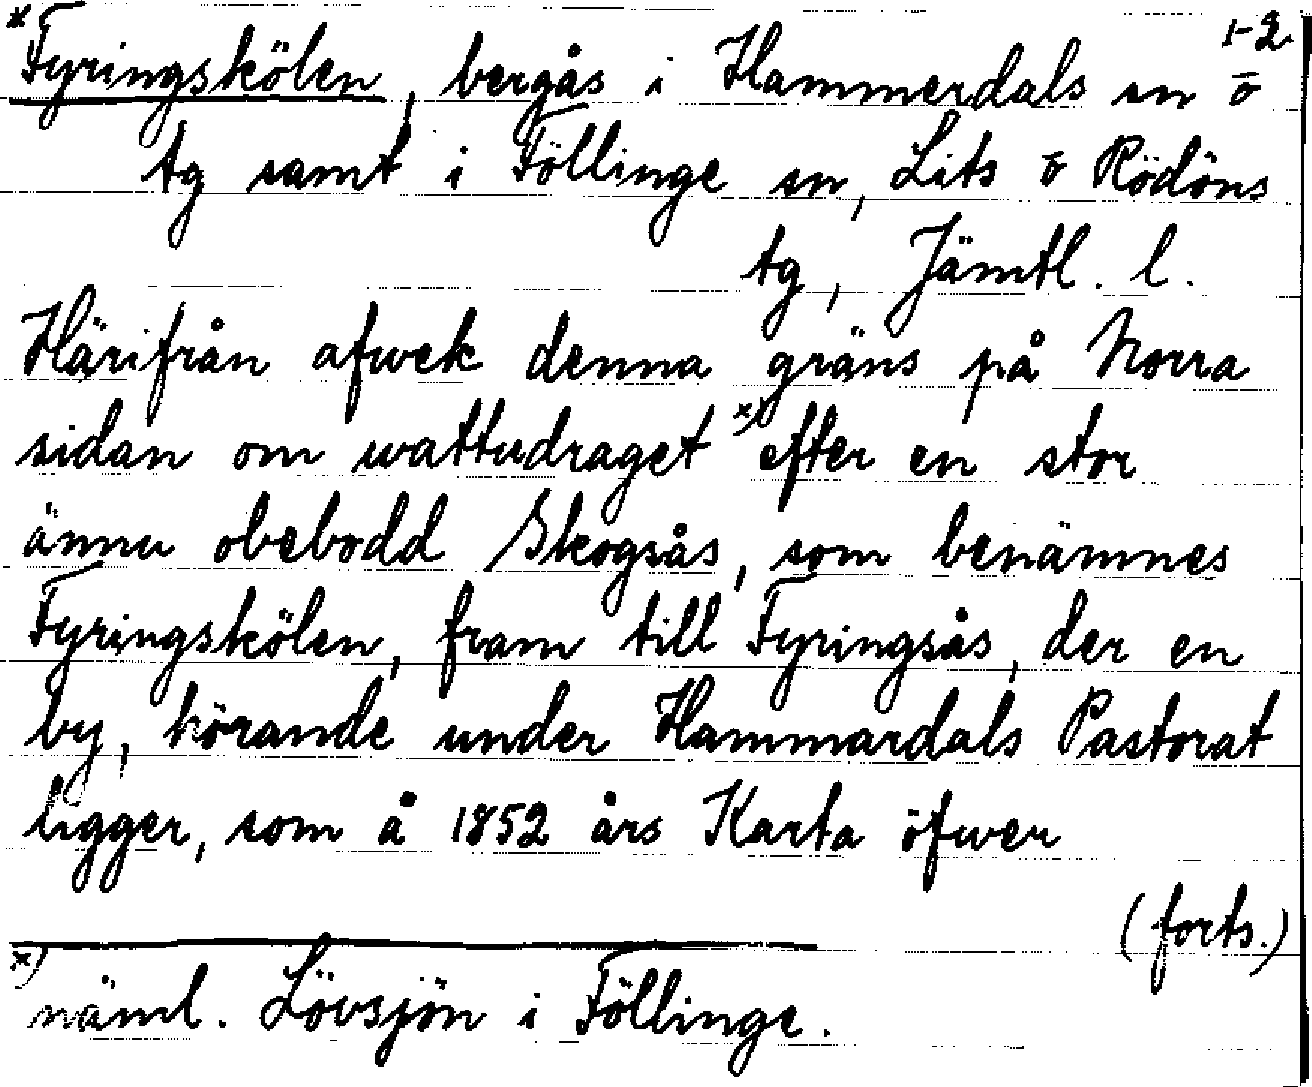 1-2.
*Fyringskölen, bergås i Hammerdals sn ō
tg samt i Föllinge sn, Lits ō Rödöns
tg, Jämtl. l.
Härifrån afwek denna gräns på Norra
sidan om wattudraget x) efter en stor
ännu obebodd Skogsås, som benämnes
Fyringskölen, fram till Fyringsås, der en
by, hörande under Hammardals Pastorat
ligger, som å 1852 års Karta öfwer
(forts.)
x) näml. Lövsjön i Föllinge.